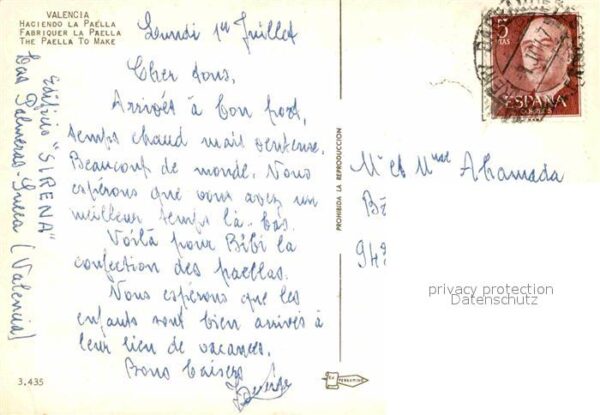 VALENCIA
HACIENDO LA PAELLA
FABRIQUER LA PAELLA
THE PAELLA TO MAKE
Lundi 1er Juillet
Cher tous,
Arrivés à bon port,
temps chaud mais venteux.
Beaucoup de monde. Nous
espérons que vous avez un
meilleur temps là-bas.
Voilà pour Bibi la
confection des paellas.
Nous espérons que les
enfants sont bien arrivés à
leur lieu de vacances.
Bons baisers
Denise
Edificio "SIRENA"
Las Palmeras-Sueca (Valencia)
3.435
PROHIBIDA LA REPRODUCCIÓN
5
PTAS
ESPAÑA
CORREOS
Mr et Mme Ahamada
Bé
94
privacy protection
Datenschutz